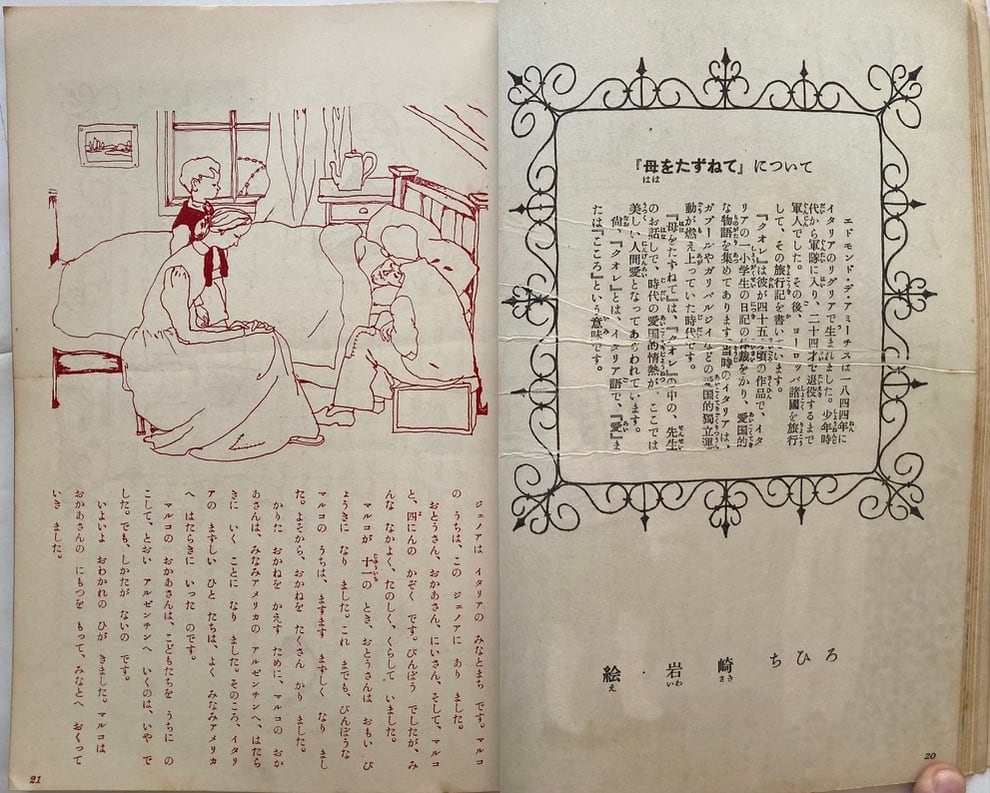 『母をたずねて』について
エドモンド・デ・アミーチスは一八四四年に
イタリアのリグリアで生まれました。少年時
代から軍隊に入り、二十四才で退役するまで
軍人でした。その後、ヨーロッパ諸國を旅行
して、その旅行記を書いています。
『クオレ』は彼が四十五 頃の作品で、イタ
リアの一小学生の日記の体裁をかり、愛国的
な物語を集めてあります。当時のイタリアは、
ガブールやガリバルジイなどの 国的獨立運
動が燃え上っていた時代です。
『母をたずねて』は、『クオレ』の中の、先生
のお話しで、時代の愛国的情熱が、ここでは
美しい人間愛となってあらわれています。
尚、『クオレ』とは、イタリア語で、『愛』ま
たは『こころ』という意味です。
絵・岩崎 ちひろ
20
ジェノアは イタリアの みなとまち です。マルコ
の うちは、この ジェノアに あり ました。
おとうさん、おかあさん、にいさん、そして、マルコ
と、四にんの かぞく です。びんぼう でしたが、み
んな なかよく、たのしく、くらして いました。
マルコが 十一の とき、おとうさんは おもい び
ょうきに なり ました。これ までも、びんぼうな
マルコの うちは、ますます まずしく なり まし
た。よそから、おかねを たくさん かり ました。
かりた おかねを かえす ために、マルコの おか
あさんは、みなみアメリカの アルゼンチンへ、はたら
きに いく ことに なり ました。そのころ、イタリ
アの まずしい ひと たちは、よく みなみアメリカ
へ はたらきに いった のです。
マルコの おかあさんは、こどもたちを うちに の
こして、とおい アルゼンチンへ いくのは、いや で
した。でも、しかたが ないの です。
いよいよ おわかれの ひが きました。マルコは
おかあさんの にもつを もって、みなとへ おくって
いき ました。
21